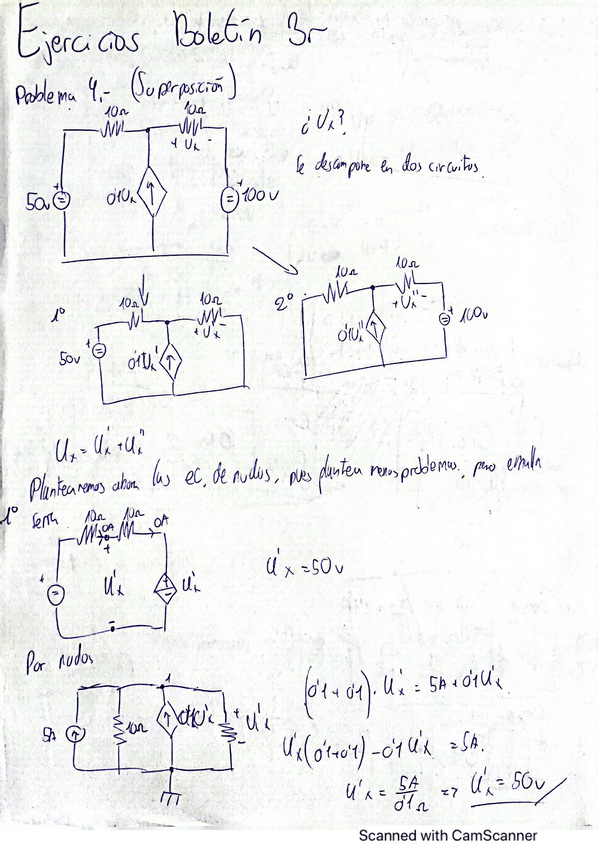 Ejercicios Boletín 3r
Problema 4.- (Superposición)
10Ω 10Ω
+ Ux -
50v 0'1Ux 100v
¿Ux?
Se descompone en dos circuitos.
1º 10Ω 10Ω
+ U'x -
50v 0'1U'x
2º 10Ω 10Ω
+ U''x -
0'1U''x 100v
Ux = U'x + U''x
Plantearemos ahora las ec. de nudos, pues plantea menos problemas, pero
1º Sería
10Ω 0A 10Ω 0A
+ U'x - U'x
U'x = 50v
Por nudos
1
5A 10Ω 0'1U'x + U'x -
(0'1 + 0'1) · U'x = 5A + 0'1U'x
U'x (0'1+0'1) - 0'1 U'x = 5A.
U'x = 5A/0'1Ω => U'x = 50v
Scanned with CamScanner